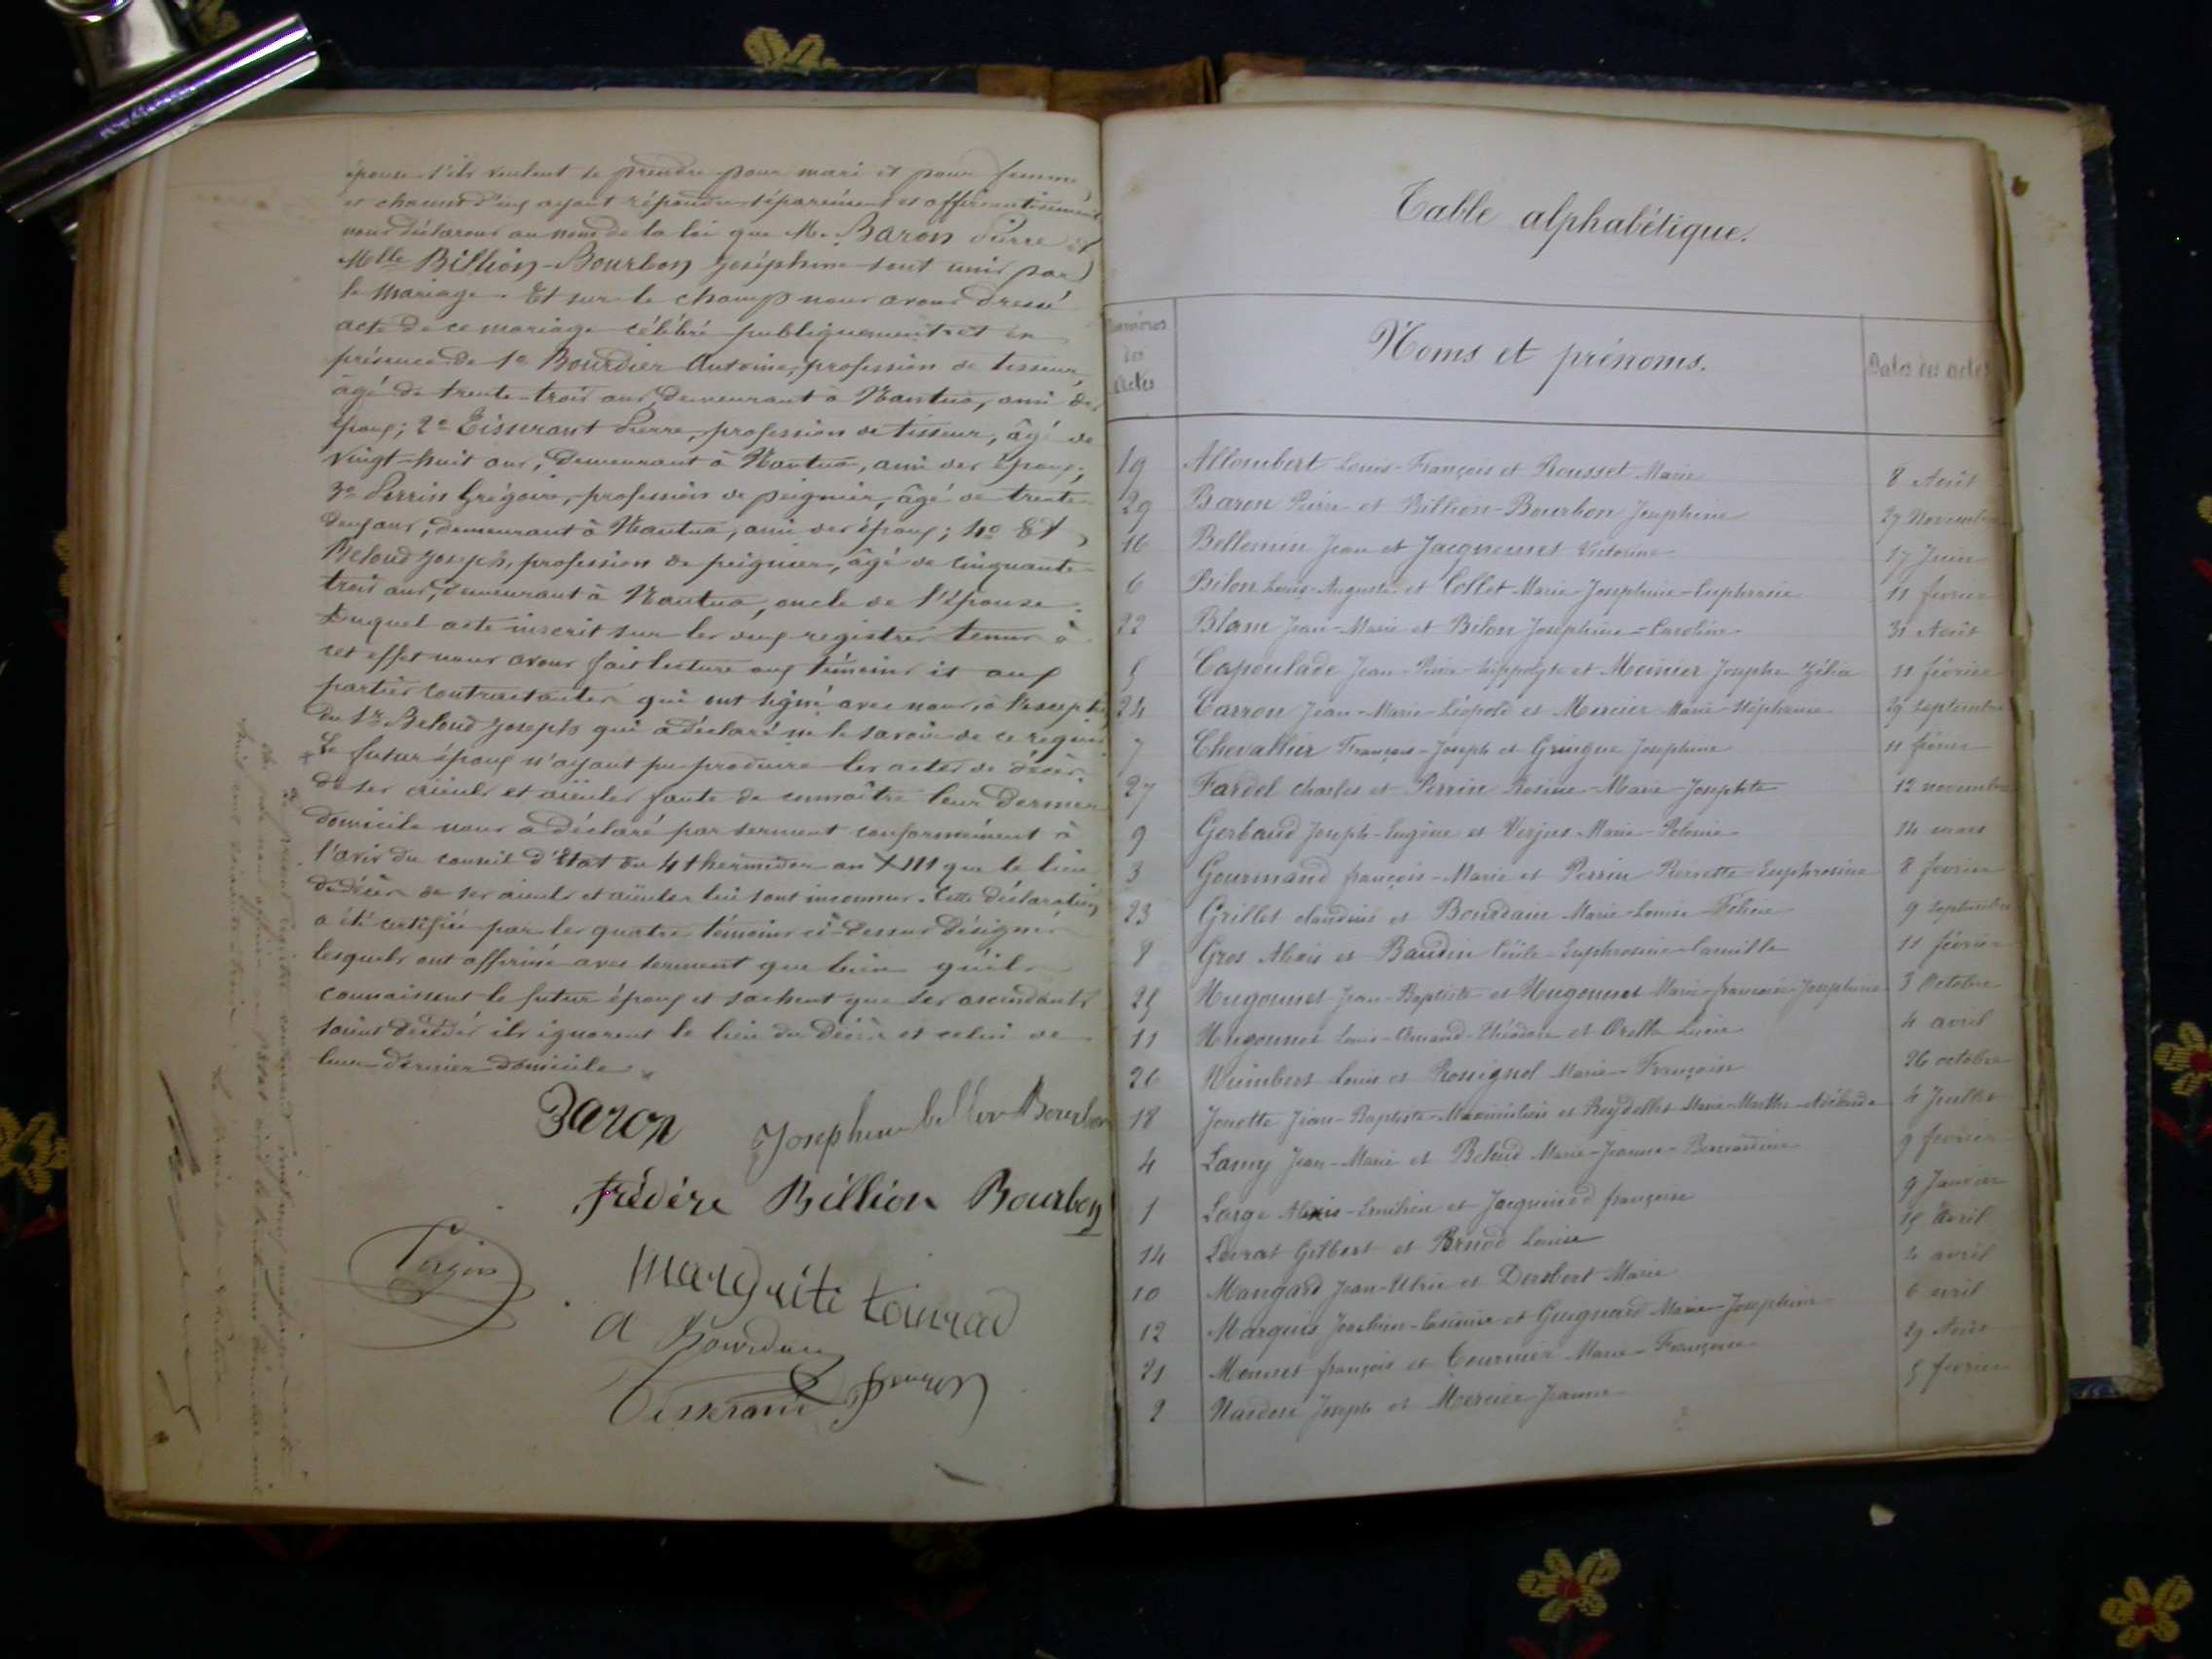 épouse s'ils veulent se prendre pour mari et pour femme,
et chacun d'eux ayant répondu séparément et affirmativement
nous déclarons au nom de la loi que M. Baron Pierre et
Melle Billion-Bourbon Joséphine sont unis par
le mariage. Et sur le champ nous avons dressé
acte de ce mariage célébré publiquement et en
présence de 1o Bourdier Antoine, profession de tisseur,
âgé de trente-trois ans, demeurant à Nantua, ami des
époux; 2o Tisserant Pierre, profession de tisseur, âgé de
vingt-huit ans, demeurant à Nantua, ami des époux;
3o Perrin Grégoire, profession de peignier, âgé de trente-
deux ans, demeurant à Nantua, ami des époux; 4o Et
Beloud Joseph, profession de peignier, âgé de cinquante-
trois ans, demeurant à Nantua, oncle de l'épouse.
Duquel acte inscrit sur les deux registres tenus à
cet effet nous avons fait lecture aux témoins et aux
parties contractantes qui ont signé avec nous, à l'exception
du Sr Beloud Joseph qui a déclaré ne le savoir de ce requis
Le futur époux n'ayant pu produire les actes de décès
de ses aïeuls et aïeules faute de connaître leur dernier
domicile nous a déclaré par serment conformément à
l'avis du conseil d'Etat du 4 thermidor an XIII que le lieu
de décès de ses aïeuls et aïeules lui sont inconnus. Cette déclaration
a été certifiée par les quatre témoins ci-dessus désignés
lesquels ont affirmé avec serment que bien qu'ils
connaissent le futur époux et sachent que ses ascendants
soient décédés ils ignorent le lieu du décès et celui de
leur dernier domicile.
Baron Josephine billion Bourbon
frédéric Billion Bourbon
margrite
a Bourdier
Tisserant perrin
Table alphabétique.
Numéros des actes
Noms et prénoms.
Dates des actes
19 Allombert Louis-François et Rousset Marie 8 Août
29 Baron Pierre et Billion-Bourbon Joséphine 27 Novembre
16 Bellemin Jean et Jacquemet Victorine 17 Juin
6 Bilon Louis-Auguste et Collet Marie-Joséphine-Euphrosie 11 février
22 Blanc Jean-Marie et Belon Joséphine-Caroline 31 Août
5 Capoulade Jean-Pierre-hippolyte et Mercier Josephe Zélie 11 février
24 Carron Jean-Marie-Léopold et Mercier Marie-Stéphanie 29 Septembre
7 Chevallier François-Joseph et Gringue Joséphine 11 février
27 Fardel Charles et Perrin Rosine-Marie-Josephte 12 novembre
9 Gerbaud Joseph-Eugène et Verjus Marie-Polonie 14 mars
3 Gourmand françois-Marie et Perrin Pierrette-Euphrosine 8 février
23 Grillet claudius et Bourdain Marie-Louise-Félicie 9 Septembre
8 Gros Alexis et Baudin Cécile-Euphrosine-Camille 11 février
25 Hugonnet Jean-Baptiste et Hugonnet Marie-françoise-Joséphine 3 Octobre
11 Hugonnet Louis-Armand-Théodore et Orelle Lucie 4 avril
26 Humbert Louis et Rossignol Marie-Françoise 26 octobre
18 Jouotte Jean-Baptiste-Maximilien et Reydellet Marie-Marthe-Adélaïde 4 Juillet
4 Lamy Jean-Marie et Beloud Marie-Jeanne-Bernardine 9 février
1 Large Alexis-Emilien et Jacquinod françoise 9 Janvier
14 Leurat Gilbert et Brunod Louise 15 avril
10 Mangard Jean-Ulric et Dersbert Marie 4 avril
12 Marquis Joachim-Casimir et Guignard Marie-Joséphine 6 avril
21 Monnet françois et Cournier Marie-Françoise 29 Août
2 Nardon Joseph et Mercier Jeanne 5 février